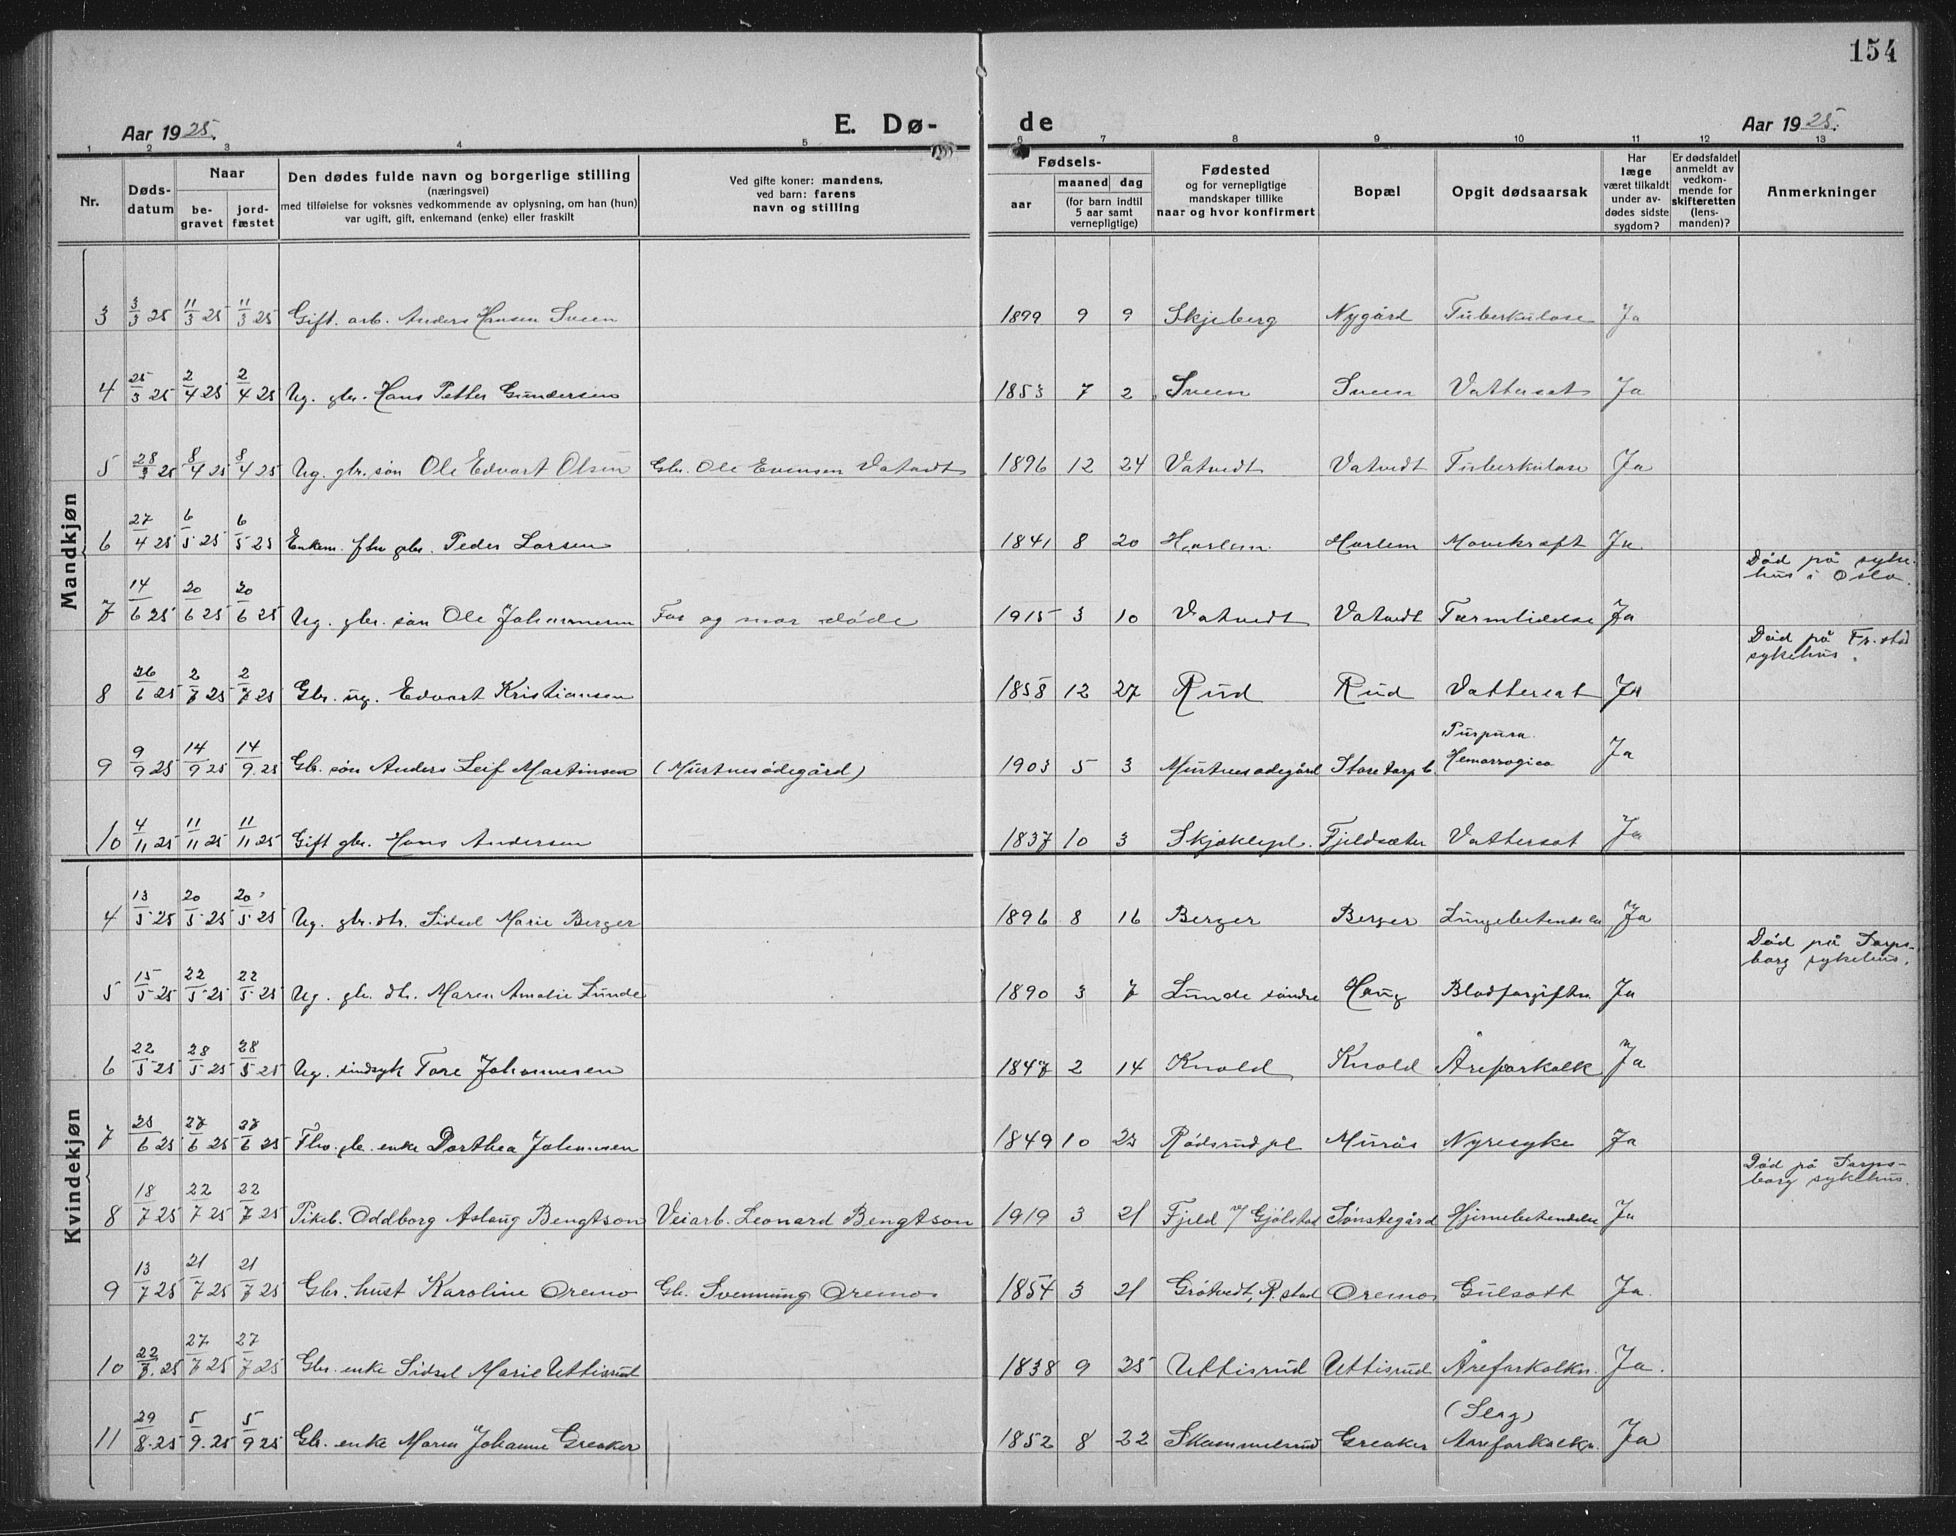 154
Aar 1925. E. Dø- de Aar 1925.
1 2 3 4 5 6 7 8 9 10 11 12 13
Nr. Døds-datum Naar be-gravet jord-fæstet Den dødes fulde navn og borgerlige stilling (næringsvei) med tilføielse for voksnes vedkommende av oplysning, om han (hun) var ugift, gift, enkemand (enke) eller fraskilt Ved gifte koner: mandens, ved barn: farens navn og stilling Fødsels- aar maaned dag (for barn indtil 5 aar samt vernepligtige) Fødested og for vernepligtige mandskaper tillike naar og hvor konfirmert Bopæl Opgit dødsaarsak Har læge været tilkaldt under av-dødes sidste sygdom? Er dødsfaldet anmeldt av vedkom-mende for skifteretten (lens-manden)? Anmerkninger
Mandkjøn
3 3/3 25 11/3 25 11/3 25 Gift. arb. Anders Hansen Sveen 1899 9 9 Skjeberg Nygård Tuberkulose Ja
4 25/3 25 2/4 25 2/4 25 Ug. gbr. Hans Petter Gundersen 1853 7 2 Sveen Sveen Vattersot Ja
5 28/3 25 8/4 25 8/4 25 Ug. gbr. søn Ole Edvart Olsen Gbr. Ole Evensen Vatvedt 1896 12 24 Vatvedt Vatvedt Tuberkulose Ja
6 27/4 25 6/5 25 6/5 25 Enkem. fhv gbr. Peder Larsen 1841 8 20 Harlem Harlem Marekraft Ja
7 14/6 25 20/6 25 20/6 25 Ug. gbr. søn Ole Johannesen Far og mor døde 1915 3 10 Vatvedt Vatvedt Tarmlidelse Ja Død på syke-hus i Oslo.
8 26/6 25 2/7 25 2/7 25 Gbr. ug. Edvart Kristiansen 1858 12 27 Rud Rud Vattersot Ja Død på Fr.stad sykehus.
9 9/9 25 14/9 25 14/9 25 Gb. søn Anders Leif Martinsen (Murtnesødegård) 1903 5 3 Murtnesødegård Storetorp Purpura Hemorrogica Ja
10 4/11 25 11/11 25 11/11 25 Gift gbr. Hans Andersen 1837 10 3 Skjæklepl. Fjeldsæter Vattersot Ja
Kvindekjøn
4 13/5 25 20/5 25 20/5 25 Ug. gbr. dtr. Sidsel Marie Berger 1896 8 16 Berger Berger Lungebetendelse Ja
5 15/5 25 22/5 25 22/5 25 Ug. gbr. dtr. Maren Amalie Lunde 1890 3 7 Lunde søndre Haug Blodforgiftn. Ja Død på Sarps-borg sykehus.
6 22/5 25 28/5 25 28/5 25 Ug. sindsyk Tore Johannesen 1847 2 14 Knold Knold Åreforkalk Ja
7 23/6 25 27/6 25 27/6 25 Fhv. gbr. enke Dorthea Johansen 1849 10 23 Rødsrud pl Murås Nyresyke Ja
8 18/7 25 22/7 25 22/7 25 Pikeb. Oddborg Aslaug Bengtson Veiarb. Leonard Bengtson 1919 3 21 Fjeld v/ Gjølstad Tønstegård Hjernebetendelse Ja Død på Sarps-borg sykehus.
9 13/7 25 21/7 25 21/7 25 Gbr. hust Karoline Oremo Gb. Svennung Oremo 1854 3 21 Grøtvedt, R.stad Oremo Gulsott Ja.
10 22/7 25 27/7 25 27/7 25 Gbr. enke Sidsel Marie Uttisrud 1838 9 25 Uttisrud Uttisrud Åreforkalkn. Ja.
11 29/8 25 5/9 25 5/9 25 Gbr. enke Maren Johanne Greaker 1852 8 22 Skammelsrud Greaker Aareforkalkn. Ja